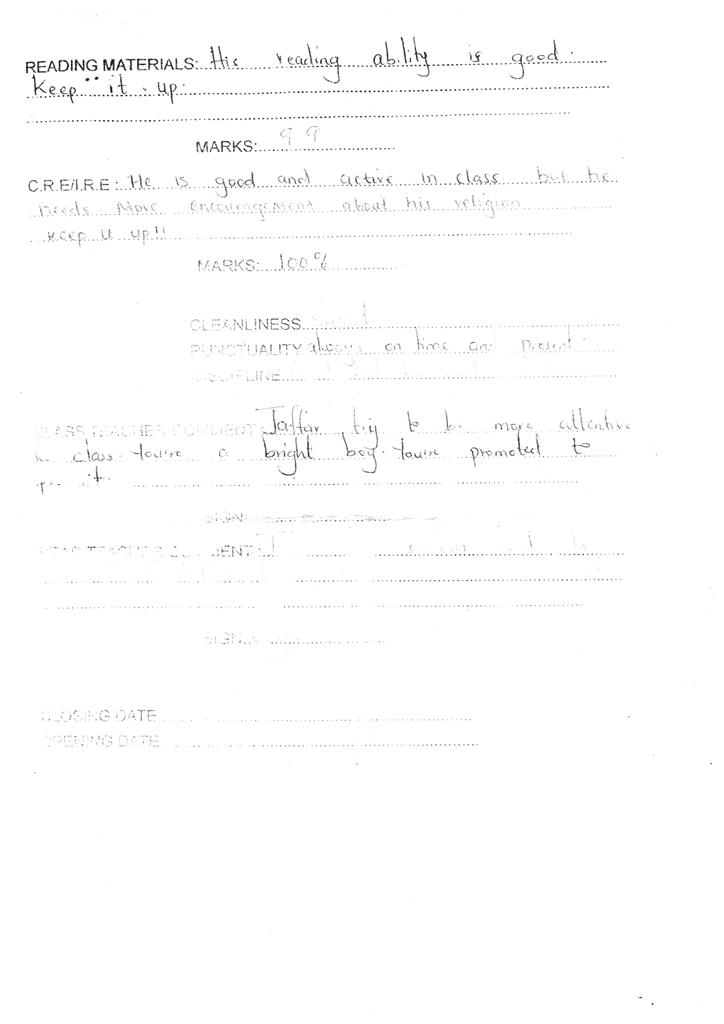 READING MATERIALS: His reading ability is good.
Keep it up.
MARKS: 99
C.R.E/I.R.E: He is good and active in class but he
needs More encouragement about his religion
Keep it up!!
MARKS: 100%
CLEANLINESS
PUNCTUALITY always on time and present.
DISCIPLINE
CLASS TEACHER COMMENT Jaffar try to be more attentive
in class. You're a bright boy. You're promoted to
SIGN
HEAD TEACHER'S COMMENT
SIGN
CLOSING DATE
OPENING DATE